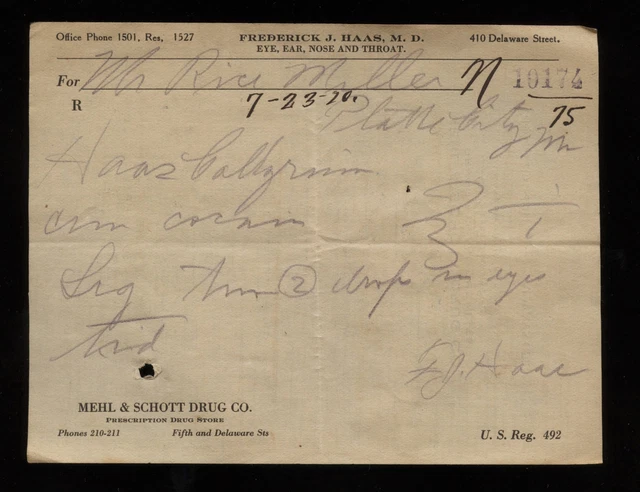 Office Phone 1501, Res, 1527 FREDERICK J. HAAS, M. D. 410 Delaware Street.
EYE, EAR, NOSE AND THROAT.
For Mr Rice Miller N 10174
R 7-23-20. 75
Platte City, Mo
Haas Collyrium
cum cocain ℥ i
Sig Two (2) drops in eyes
tid
F.J. Haas
MEHL & SCHOTT DRUG CO.
PRESCRIPTION DRUG STORE
Phones 210-211 Fifth and Delaware Sts U. S. Reg. 492